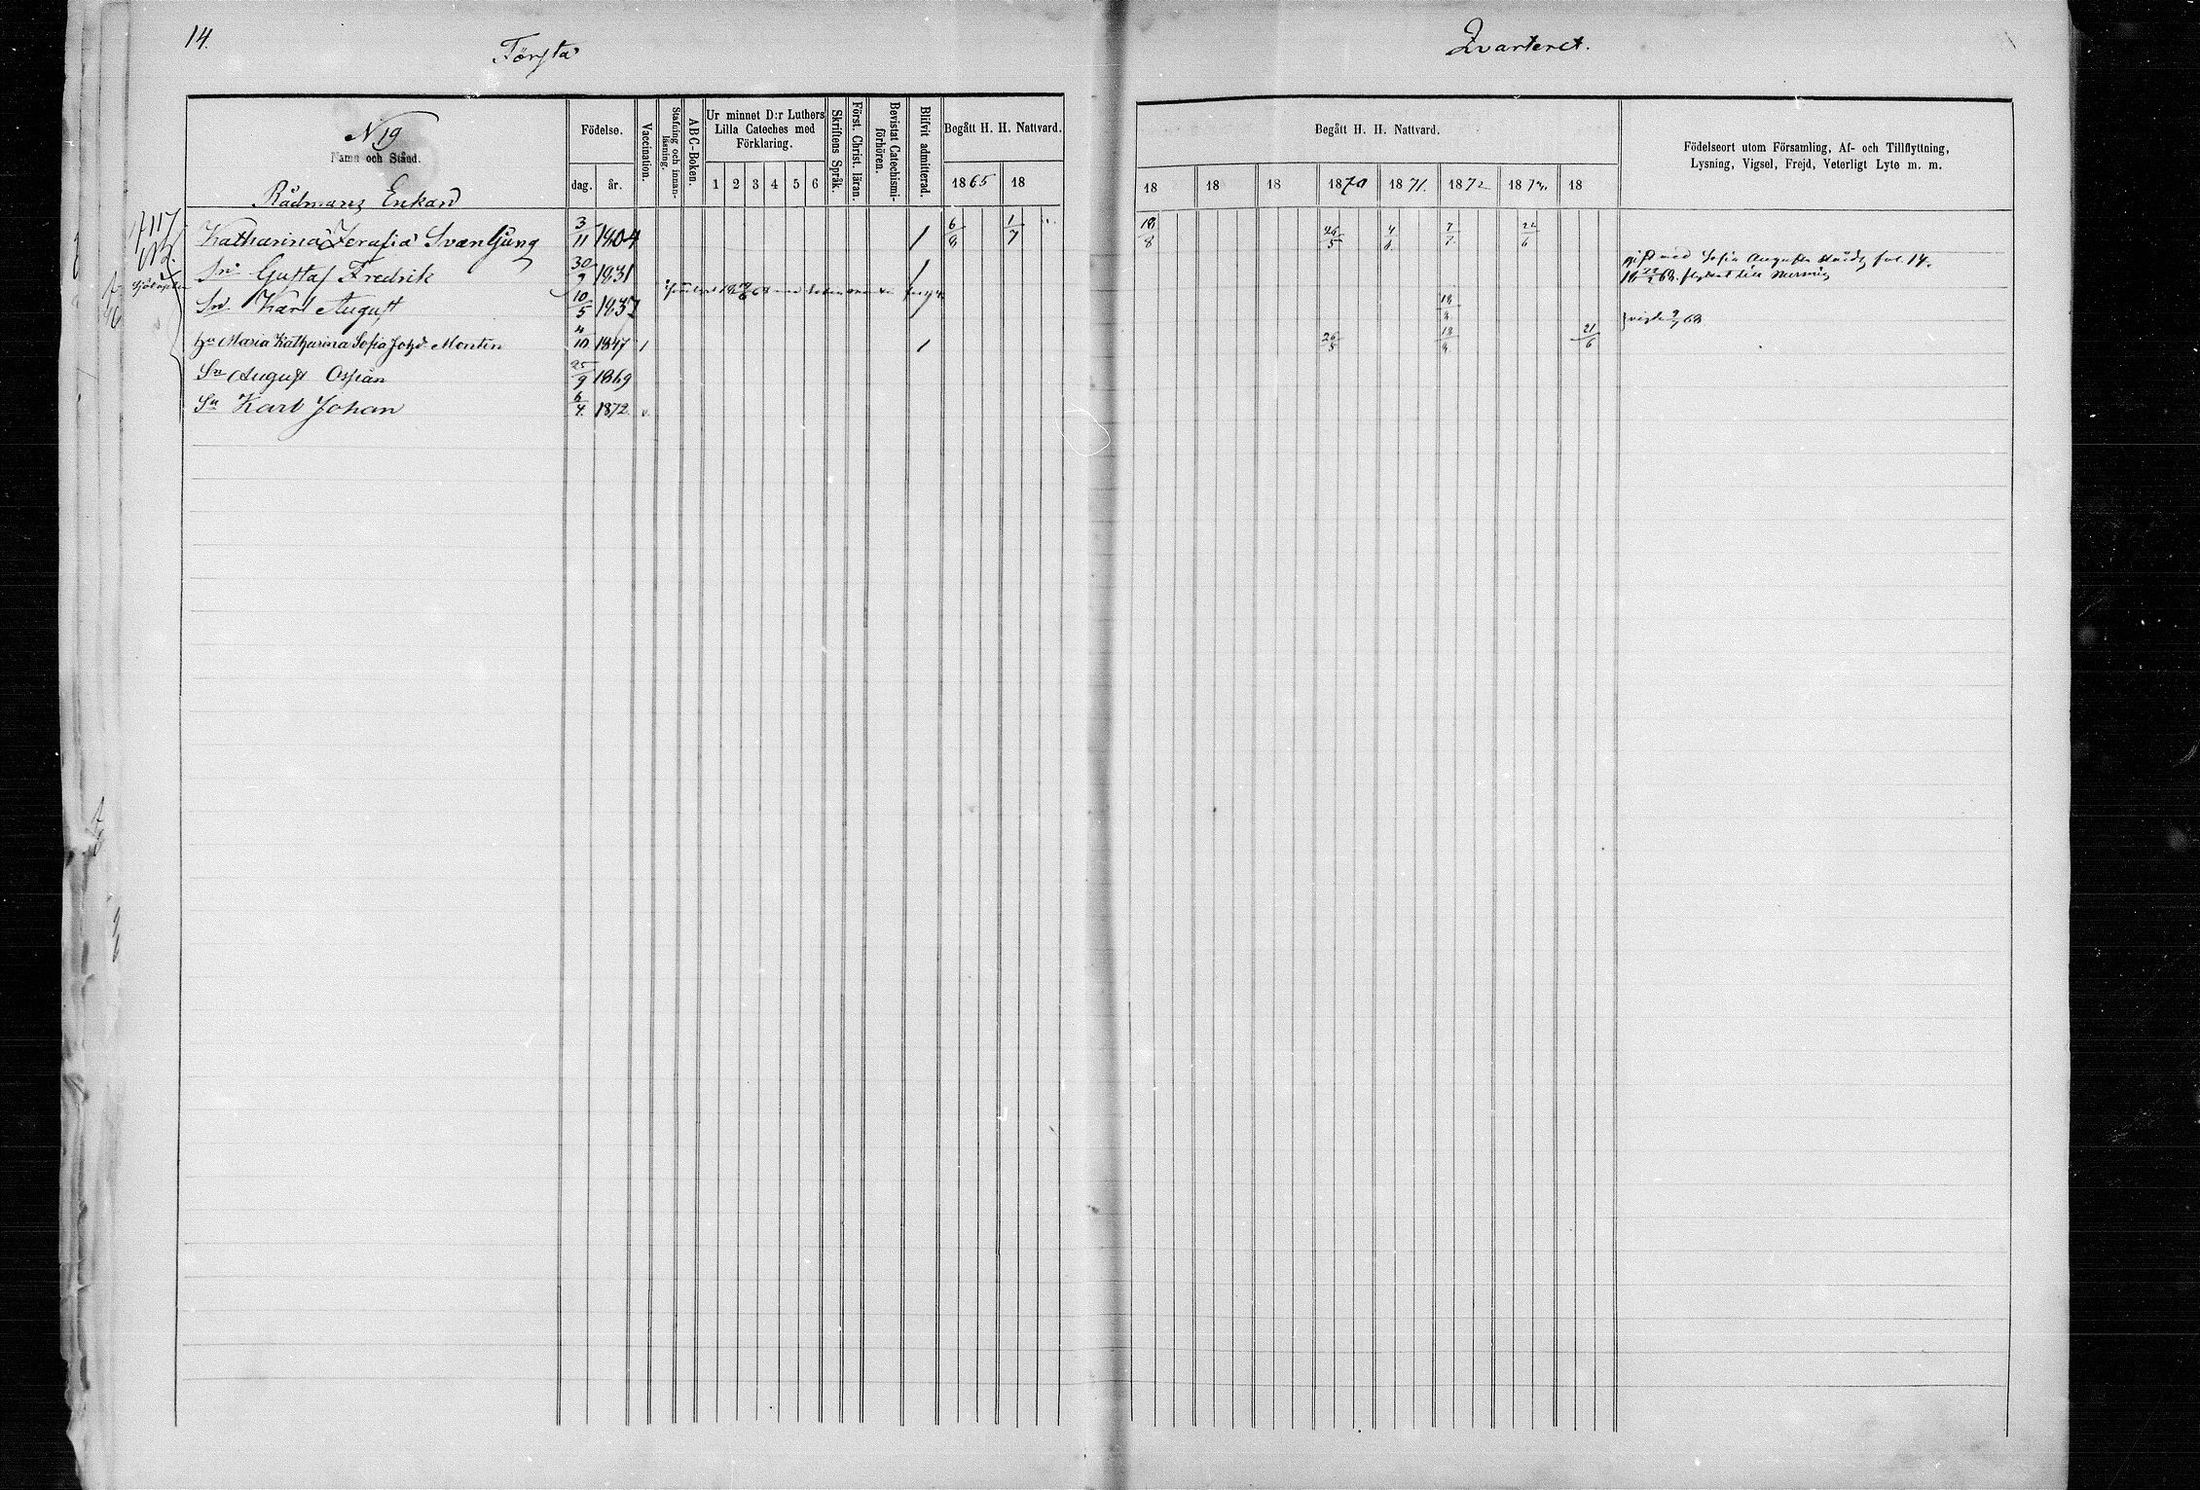 14.
Första
Qvarteret.
N 19
Namn och Stånd.
Födelse.
dag. år.
Vaccination.
Stafning och innan-läsning.
ABC-Boken.
Ur minnet D:r Luthers
Lilla Cateches med
Förklaring.
1 2 3 4 5 6
Skriftens Språk.
Först. Christ. läran.
Bevistat Catechismi-förhören.
Blifvit admitterad.
Begått H. H. Nattvard.
1865 18
Begått H. H. Nattvard.
18 18 18 1870 1871. 1872 187 18
Födelseort utom Församling, Af- och Tillflyttning,
Lysning, Vigsel, Frejd, Veterligt Lyte m. m.
Rådmans Enkan
Katharina Serafia Svanljung 3/11 1804 / 6/8 1/7 18/8 26/5 7/7 22/6
Sn Gustaf Fredrik 30/9 1831 / gift med Sofia Augusta fol. 14.
Sn Karl August 10/5 1837 / 18/8
Maria Katharina Sofia Montin 4/10 1847 / / 26/5 18/8 21/6
Sn August Ossian 25/9 1869
Sn Karl Johan 6/4 1872